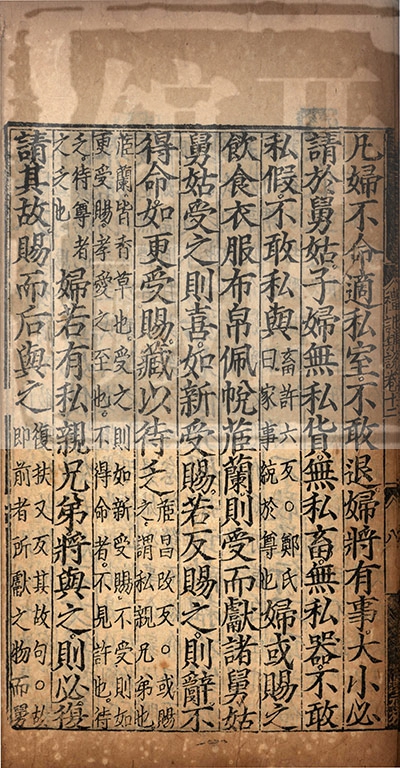 凡婦不命適私室。不敢退婦將有事。大小必
請於舅姑。子婦無私貨。無私畜。無私器。不敢
私假。不敢私與畜許六反。○鄭氏曰家事統於尊也婦或賜之
飲食衣服布帛佩帨茝蘭則受而獻諸舅姑
舅姑受之則喜。如新受賜。若反賜之則辭。不
得命。如更受賜。藏以待乏茝昌改反。○或賜之。謂私親兄弟也
茝蘭皆香草也。受之則如新受賜不受則如更受賜。孝愛之至也。不得命者。不見許也。待乏。待尊者之乏也
婦若有私親兄弟將與之。則必復
請其故。賜而后與之復扶又反其故句。○故即前者所獻之物而舅
禮記集說卷十二
八